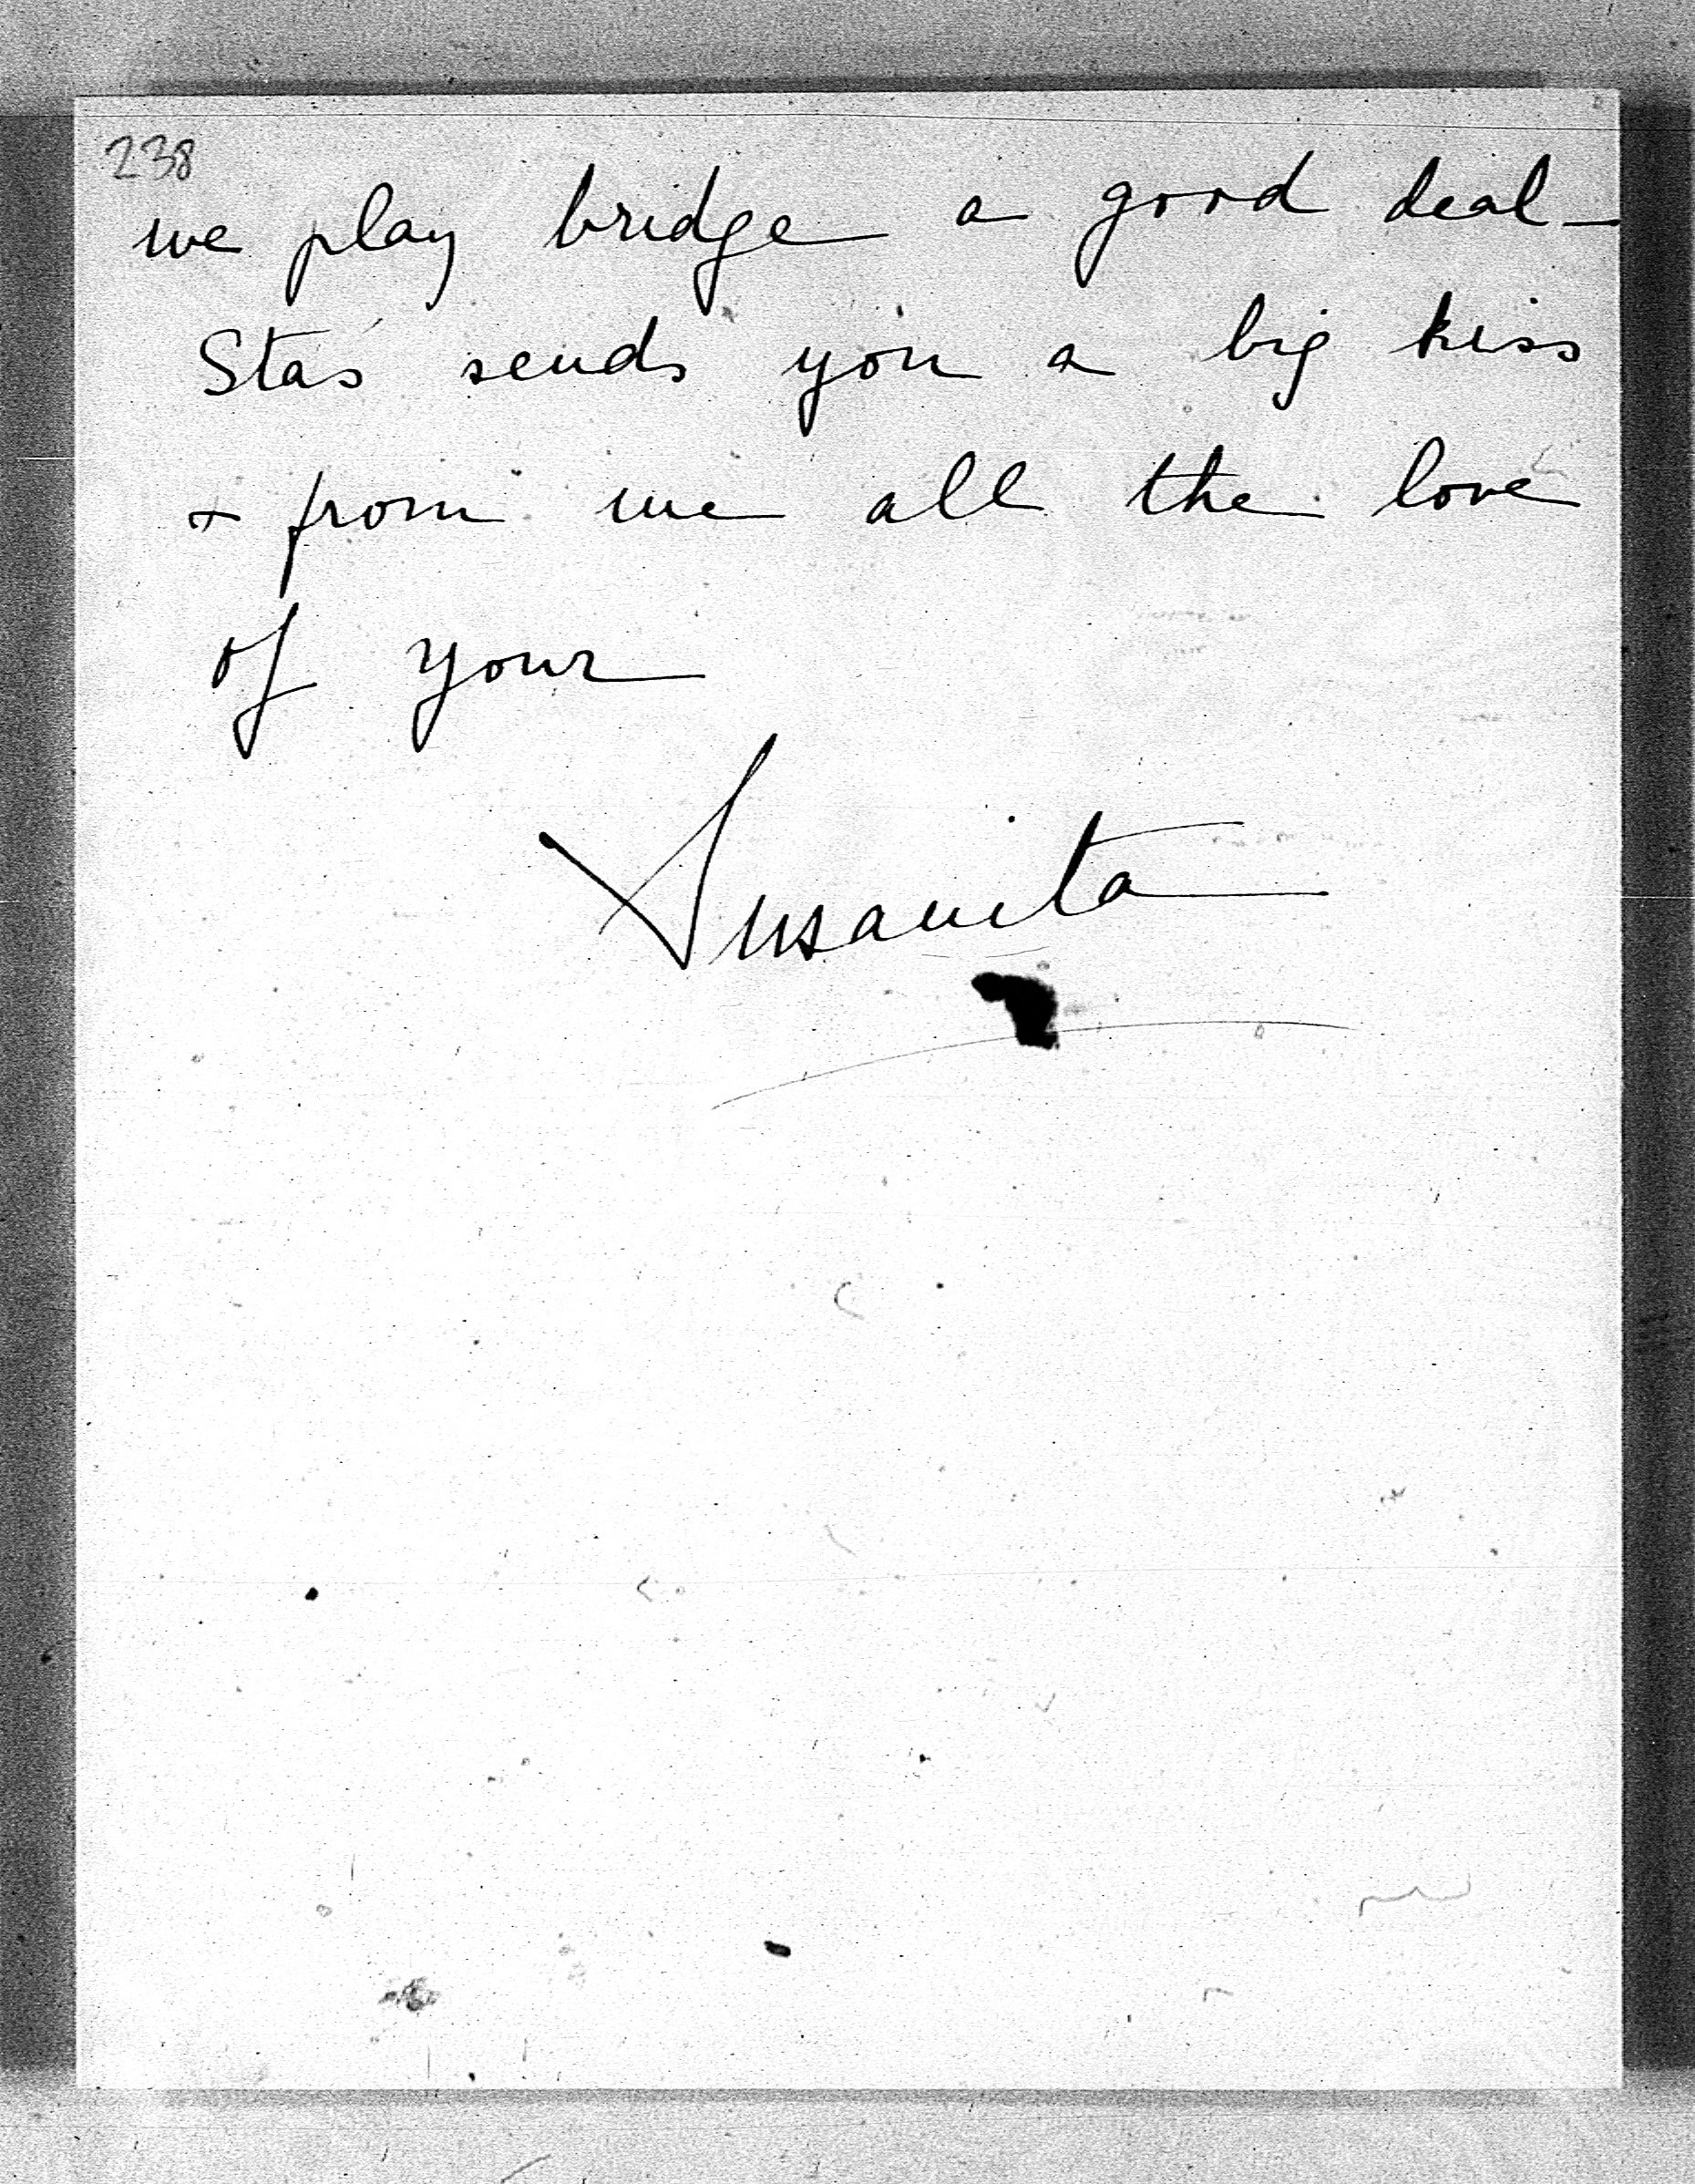 238
we play bridge a good deal —
Staś sends you a big kiss
& from me all the love
of your
Susanita